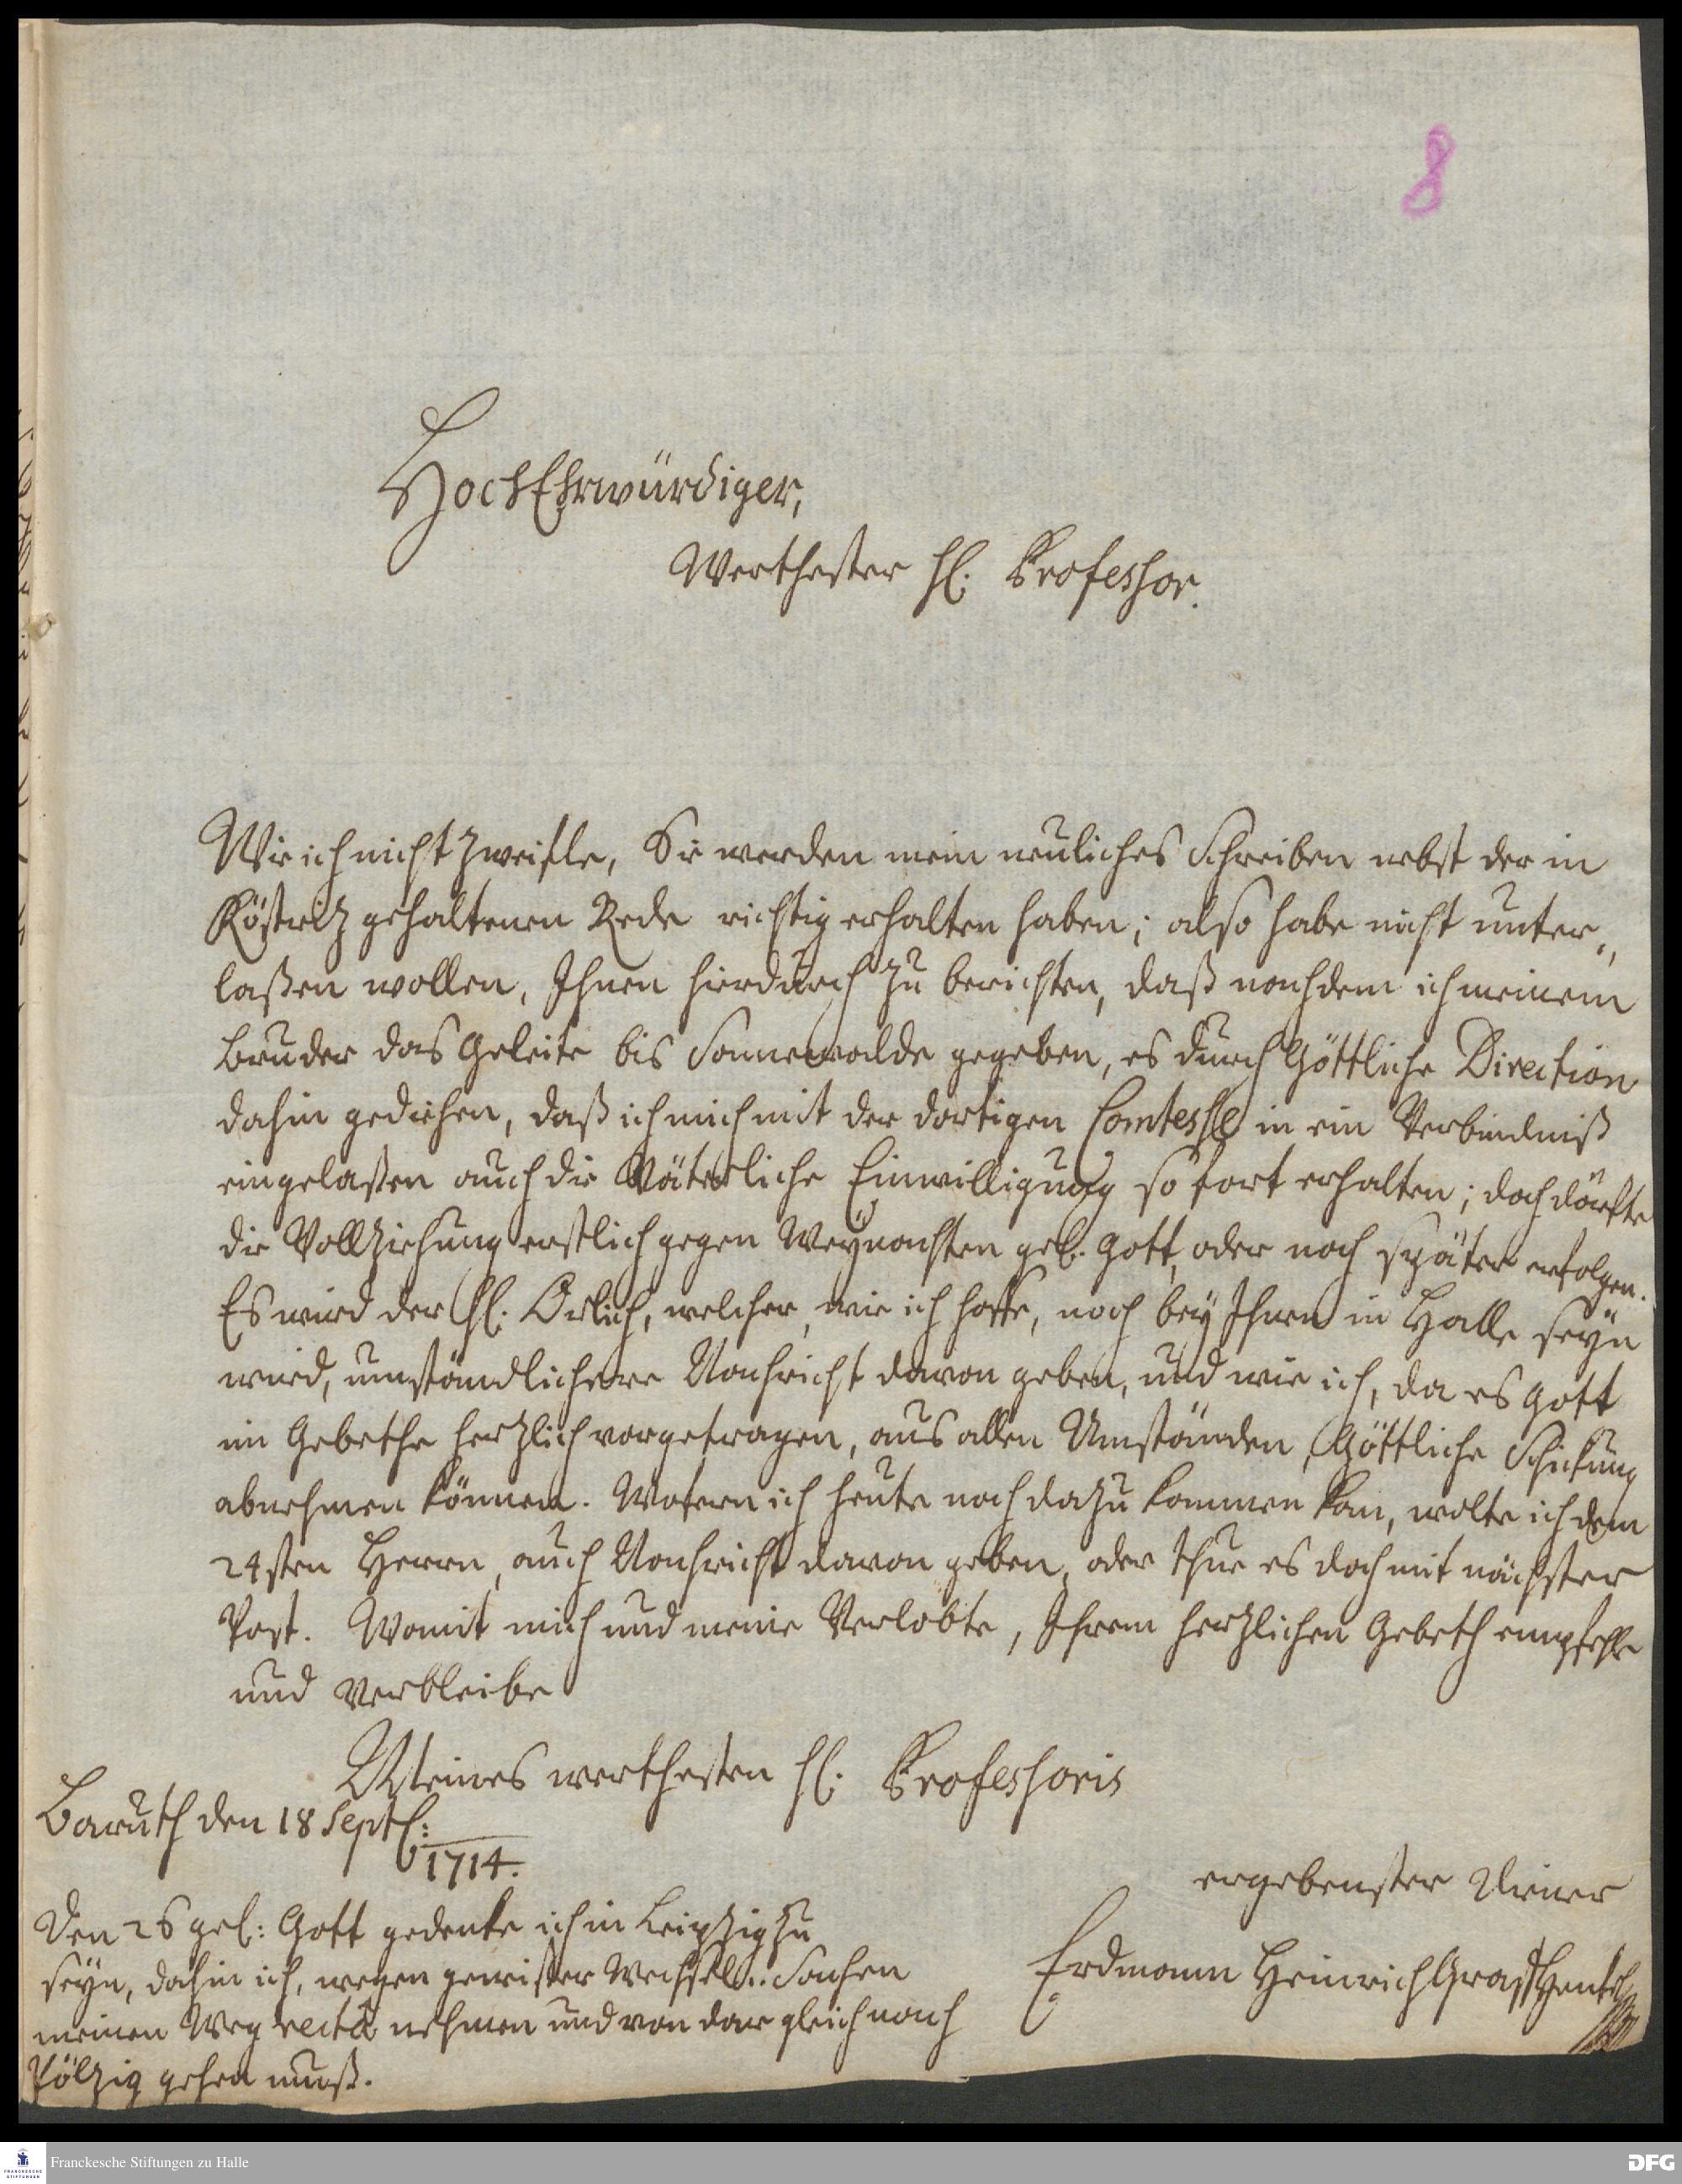 8
HochEhrwürdiger,
Werthester H. Professor.
Wie ich nicht zweifle, Sie werden mein neuliches Schreiben nebst der in
Köstritz gehaltenen Rede richtig erhalten haben; also habe nicht unter„
laßen wollen, Ihnen hierdurch zu berichten, daß nachdem ich meinem
Bruder das Geleite bis Sonnewalde gegeben, es durch Göttliche Direction
dahin gediehen, daß ich mich mit der dortigen Comtesse in ein Verbindniß
eingelaßen auch die Väterliche Einwilligung so fort erhalten; doch dörfte
die Vollziehung erstlich gegen Weynachten gel. Gott, oder noch später erfolgen.
Es wird der H. Orlich, welcher, wie ich hoffe, noch bey Ihnen in Halle seyn
wird, umständlichere Nachricht davon geben, und wie ich, da es Gott
im Gebethe hertzlich vorgetragen, aus allen Umständen, Göttliche Schikung
abnehmen können. Wofern ich heute noch dazu kommen kan, wolte ich dem
24sten Herrn, auch Nachricht davon geben, oder thue es doch mit nächster
Post. Womit mich und meine Verlobte, Ihrem hertzlichen Gebeth empfehle
und verbleibe
Meines werthesten H. Professoris
Baruth den 18 Septb:
1714.
ergebenster Diener
Erdmann Heinrich Graff Henkel
Den 26 gel: Gott gedenke ich in Leipzig zu
seyn, dahin ich, wegen gewißer Wechsel„ Sachen
meinen Weg rectà nehmen und von dar gleich nach
Pöltzig gehen muß.
Franckesche Stiftungen zu Halle
FRANCKESCHE STIFTUNGEN
DFG